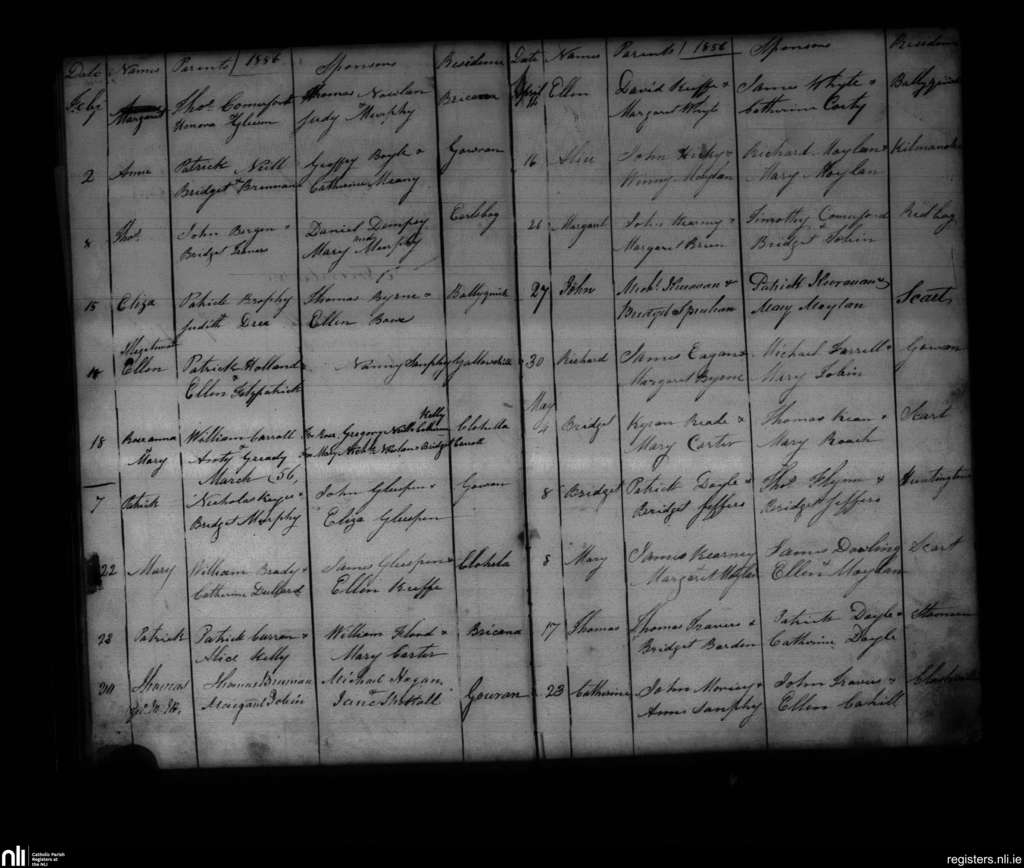 Date Names Parents / 1856 Sponsors Residence
Feby Margaret Thos. Comerford Thomas Nowlan Bricana
Honora Judy Murphy
2 Anne Patrick Neill Geoffey Boyle & Gowran
Bridget Brennan Catherine Meany
8 Thos. John Bergin & Daniel Dempsey
Bridget Mary Murphy
15 Eliza Patrick Brophy Thomas Byrne &
Judith Ellen
Illegitimate
Ellen Patrick Holland & Nanny Lanphy
Ellen Fitzpatrick
Kelly
18 Roseanna William Carroll For Rose Gregory Neill & Clohella
& Mary Gready For Mary Nowlan & Bridget Carroll
March 56,
7 Patrick Nicholas & John Gleeson & Gowran
Bridget Murphy Eliza Gleeson
22 Mary William Brady & James Gleeson & Clohela
Catherine Ellen Keeffe
22 Patrick Patrick Curran & William Flood & Bricana
Alice Kelly Mary Carter
Thomas Thomas Brennan Michael Hogan Gowran
Margaret Tobin Jane
Date Names Parents / 1856 Sponsors Residence
April Ellen David Keeffe & James Whyte &
Margaret Whyte Catherine Carty
16 Alice John Hickey & Richard Moylan &
Winny Moylan Mary Moylan
26 Margaret John Kearny & Timothy Comerford Red bog
Margaret Brien Bridget Tobin
27 John Michl. & Patrick Scart
Bridget Mary Moylan
30 Richard James Eagan & Michael Farrell & Gowran
Margaret Byrne Mary Tobin
May
4 Bridget Kyran Reade & Thomas & Scart
Mary Carter Mary Roach
8 Bridget Patrick Doyle & Thos. Flynn &
Bridget Jeffers Bridget Jeffers
8 Mary James Kearney James Dowling Scart
Margaret Moylan Ellen Moylan
17 Thomas Thomas Travers & Patrick Doyle &
Bridget Barden Catherine Doyle
23 Catherine John & John Travers &
Anne Lanphy Ellen Cahill
nli Catholic Parish
Registers at
the NLI
registers.nli.ie